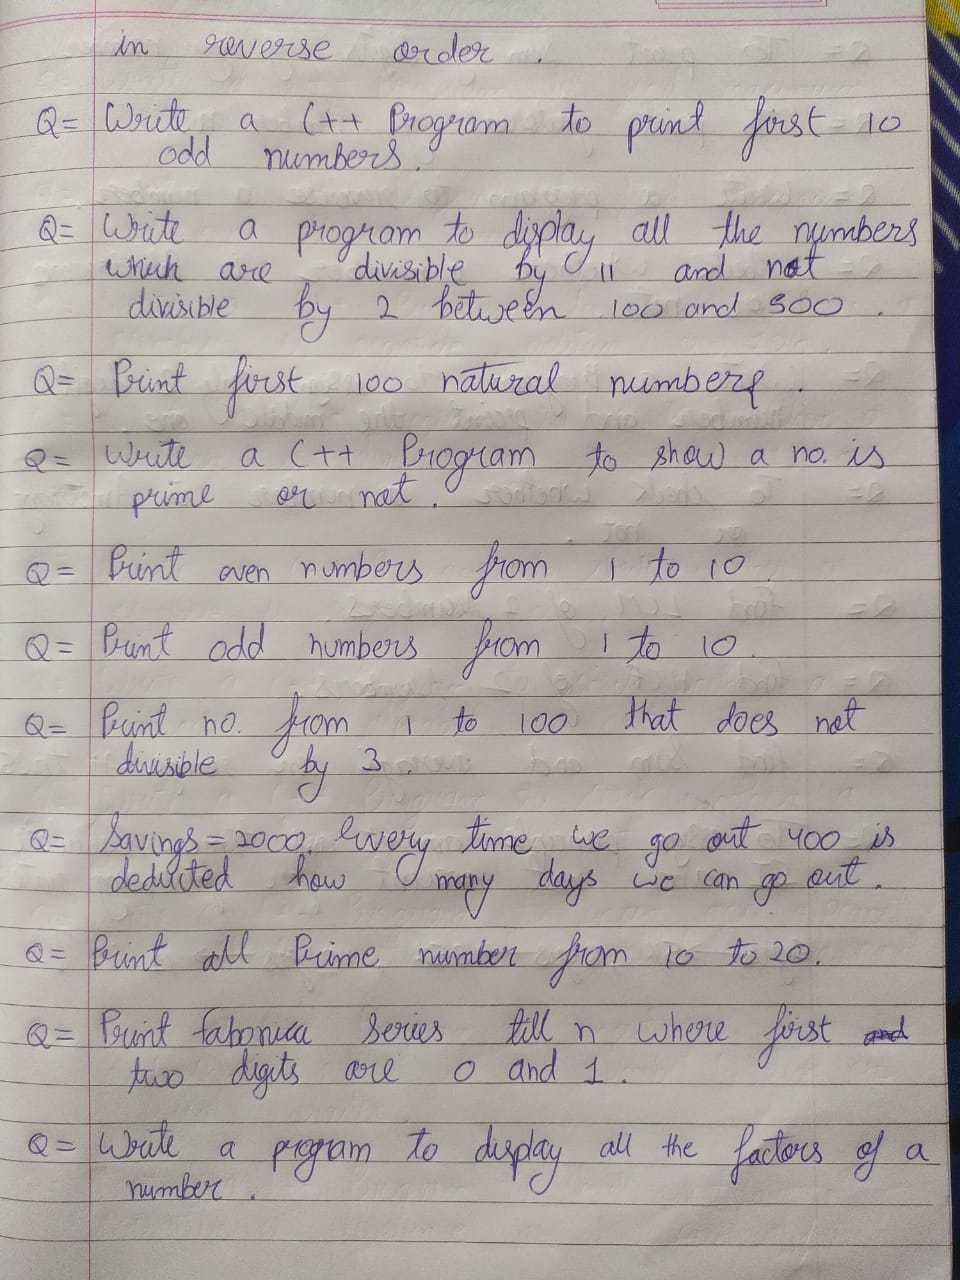 in reverse order .
Q= Write a C++ Program to print first 10
odd numbers.
Q= Write a program to display all the numbers
which are divisible by 11 and not
divisible by 2 between 100 and 500 .
Q= Print first 100 natural numbers .
Q= Write a C++ Program to show a no. is
prime or not .
Q= Print even numbers from 1 to 10
Q= Print odd numbers from 1 to 10
Q= Print no. from 1 to 100 that does not
divisible by 3 .
Q= Savings = 2000. Every time we go out 400 is
deducted how many days we can go out .
Q= Print all Prime number from 10 to 20.
Q= Print fabonica Series till n where first
two digits are 0 and 1 .
Q= Write a program to display all the factors of a
number .